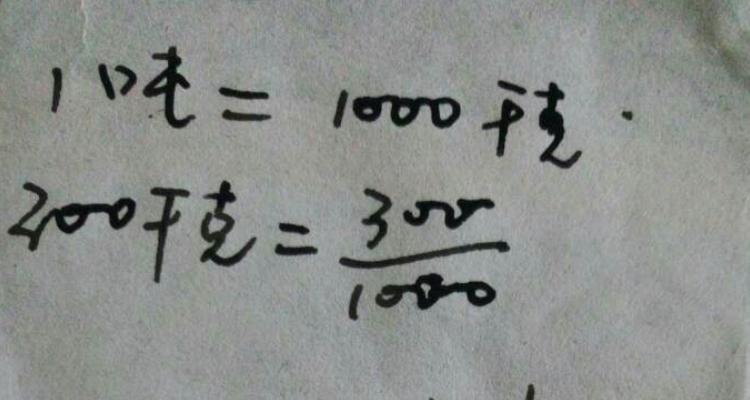 1吨=1000千克.
300千克=300/1000